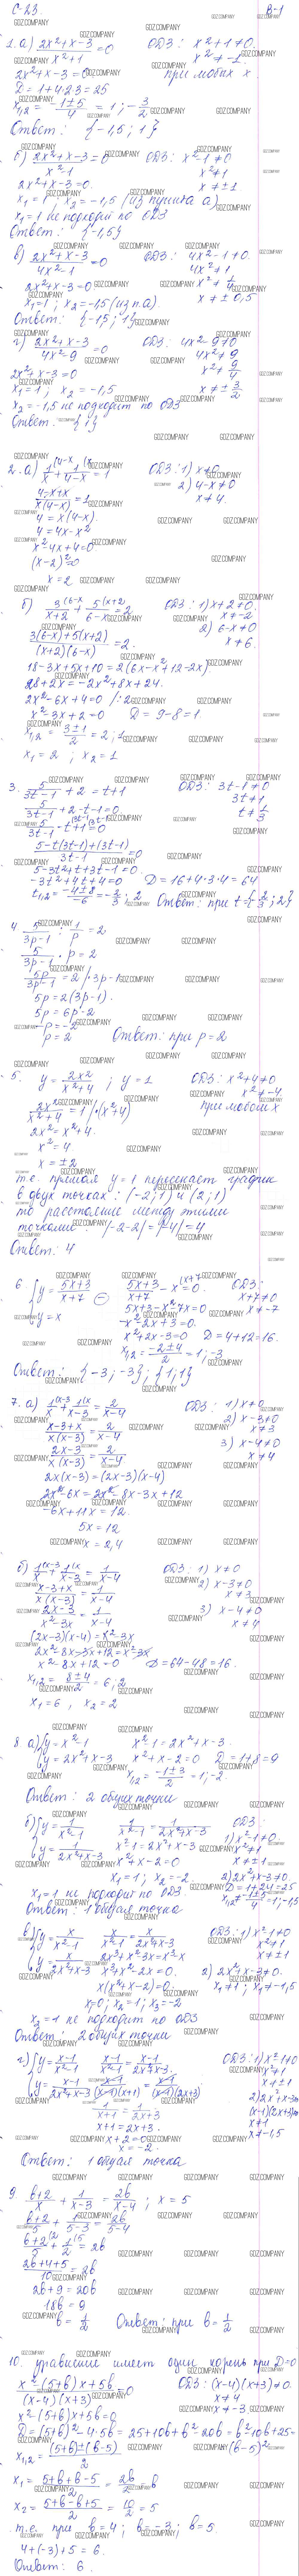 С-23. В-1
1. а) (2x²+x-3)/(x²+1) = 0 ОДЗ: x²+1≠0.
x²≠-1.
2x²+x-3=0 при любых x.
D=1+4·2·3=25
x₁,₂ = (-1±5)/4 = 1; -3/2
Ответ: {-1,5; 1}
б) (2x²+x-3)/(x²-1) = 0 ОДЗ: x²-1≠0
x²≠1
2x²+x-3=0. x≠±1
x₁=1; x₂=-1,5 (из пункта а)
x₁=1 не подходит по ОДЗ
Ответ: {-1,5}
в) (2x²+x-3)/(4x²-1) = 0 ОДЗ: 4x²-1≠0.
4x²≠1
2x²+x-3=0 x²≠1/4
x₁=1; x₂=-1,5 (из п.а) x≠±0,5
Ответ: {-1,5; 1}
г) (2x²+x-3)/(4x²-9) = 0 ОДЗ: 4x²-9≠0
4x²≠9
2x²+x-3=0 x²≠9/4
x₁=1; x₂=-1,5 x≠±3/2
x₂=-1,5 не подходит по ОДЗ
Ответ: {1}
2. а) 1/x + 1/(4-x) = 1 ОДЗ: 1) x≠0
2) 4-x≠0
(4-x+x)/(x(4-x)) = 1 x≠4.
4=x(4-x).
4=4x-x²
x²-4x+4=0
(x-2)²=0
x=2
б) 3/(x+2) + 5/(6-x) = 2 ОДЗ: 1) x+2≠0.
x≠-2
2) 6-x≠0
(3(6-x)+5(x+2))/((x+2)(6-x)) = 2. x≠6.
18-3x+5x+10=2(6x-x²+12-2x)
28+2x=-2x²+8x+24.
2x²-6x+4=0 /:2
x²-3x+2=0 D=9-8=1
x₁,₂ = (3±1)/2 = 2; 1
x₁=2; x₂=1
3. 5/(3t-1) + 2 = t+1 ОДЗ: 3t-1≠0
3t≠1
5/(3t-1) + 2-t-1=0 t≠1/3
5/(3t-1) - t+1=0
(5-t(3t-1)+(3t-1))/(3t-1) = 0
5-3t²+t+3t-1=0.
-3t²+4t+4=0 D=16+4·3·4=64
t₁,₂ = (-4±8)/-6 = -2/3; 2 Ответ: при t={-2/3; 2}
4. 5/(3p-1) : 1/p = 2
5/(3p-1) · p = 2
5p/(3p-1) = 2 /·3p-1
5p=2(3p-1).
5p=6p-2
-p=-2
p=2 Ответ: при p=2
5. y=2x²/(x²+4); y=1 ОДЗ: x²+4≠0
x²≠-4
2x²/(x²+4) = 1 /·(x²+4) при любых x
2x²=x²+4.
x²=4
x=±2
т.е. прямая y=1 пересекает график
в двух точках: (-2;1) и (2;1)
то расстояние между этими
точками: |-2-2|=|-4|=4
Ответ: 4
6. {y=(5x+3)/(x+7) (5x+3)/(x+7) - x=0. ОДЗ:
x+7≠0
y=x 5x+3-x²-7x=0 x≠-7
-x²-2x+3=0.
x²+2x-3=0 D=4+12=16.
x₁,₂ = (-2±4)/2 = 1; -3
Ответ: {-3; -3}; {1; 1}
7. а) 1/x + 1/(x-3) = 2/(x-4) ОДЗ: 1) x≠0
2) x-3≠0
(x-3+x)/(x(x-3)) = 2/(x-4) x≠3
3) x-4≠0
(2x-3)/(x(x-3)) = 2/(x-4) x≠4
2x(x-3)=(2x-3)(x-4)
2x²-6x=2x²-8x-3x+12
-6x+11x=12.
5x=12
x=2,4
б) 1/x + 1/(x-3) = 1/(x-4) ОДЗ: 1) x≠0
2) x-3≠0
(x-3+x)/(x(x-3)) = 1/(x-4) x≠3
(2x-3)/(x²-3x) = 1/(x-4) 3) x-4≠0
x≠4
(2x-3)(x-4)=x²-3x
2x²-8x-3x+12=x²-3x
x²-8x+12=0 D=64-48=16.
x₁,₂ = (8±4)/2 = 6; 2
x₁=6, x₂=2
8. а) {y=x²-1 x²-1=2x²+x-3.
y=2x²+x-3 x²+x-2=0 D=1+8=9
x₁,₂ = (-1±3)/2 = 1; -2.
Ответ: 2 общих точки
б) {y=1/(x²-1) 1/(x²-1) = 1/(2x²+x-3) ОДЗ:
1) x²-1≠0.
y=1/(2x²+x-3) x²-1=2x²+x-3 x²≠1
x²+x-2=0 x≠±1
x₁=1; x₂=-2. 2) 2x²+x-3≠0.
D=1+24=25
x₁=1 не подходит по ОДЗ x₁,₂≠(-1±5)/4=1; -1,5
Ответ: 1 общая точка
в) {y=x/(x²-1) x/(x²-1) = x/(2x²+x-3) ОДЗ: 1) x²-1≠0
x²≠1
y=x/(2x²+x-3) 2x³+x²-3x=x³-x x≠±1
x³+x²-2x=0. 2) 2x²+x-3≠0.
x(x²+x-2)=0. x₁≠1; x₂≠-1,5
x₁=0; x₂=1; x₃=-2
x₂=1 не подходит по ОДЗ
Ответ: 2 общие точки
г) {y=(x-1)/(x²-1) (x-1)/(x²-1) = (x-1)/(2x²+x-3). ОДЗ: 1) x²-1≠0
x²≠1
y=(x-1)/(2x²+x-3) (x-1)/((x-1)(x+1)) = (x-1)/((x-1)(2x+3)) x≠±1
2) 2x²+x-3≠0
1/(x+1) = 1/(2x+3) (x-1)(2x+3)≠0
x+1=2x+3. x≠1
x+2=0 x≠-1,5
x=-2.
Ответ: 1 общая точка
9. (b+2)/x + 1/(x-3) = 2b/(x-4); x=5
(b+2)/5 + 1/(5-3) = 2b/(5-4)
(b+2)/5 + 1/2 = 2b
(2b+4+5)/10 = 2b
2b+9=20b
18b=9
b=1/2 Ответ: при b=1/2
10. уравнение имеет один корень при D=0
(x²-(5+b)x+5b)/((x-4)(x+3)) = 0 ОДЗ: (x-4)(x+3)≠0.
x≠4
x²-(5+b)x+5b=0 x≠-3
D=(5+b)²-4·5b=25+10b+b²-20b=b²-10b+25=
=(b-5)²
x₁,₂ = ((5+b)±(b-5))/2
x₁ = (5+b+b-5)/2 = 2b/2 = b
x₂ = (5+b-b+5)/2 = 10/2 = 5
т.е. при b=4; b=-3; b=5.
4+(-3)+5=6.
Ответ: 6.
GDZ.COMPANY